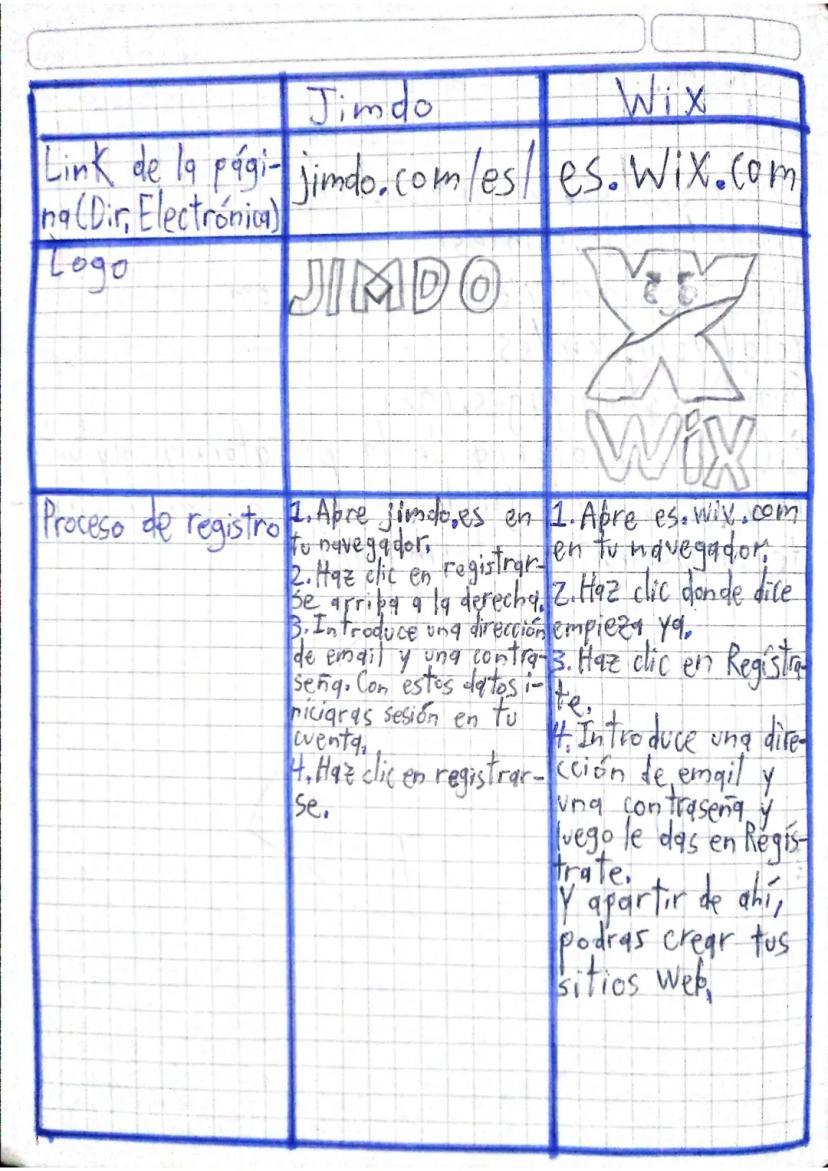 Jimdo
Wix
Link de la pági-
na (Dir. Electrónica)
jimdo.com/es/
es.wix.com
Logo
JIMDO
WiX
Proceso de registro
1. Abre jimdo.es en
tu navegador.
2. Haz clic en registrar-
se arriba a la derecha.
3. Introduce una dirección
de email y una contra-
seña. Con estos datos i-
niciaras sesión en tu
cuenta.
4. Haz clic en registrar-
se.
1. Abre es.wix.com
en tu navegador.
2. Haz clic donde dice
empieza ya.
3. Haz clic en Regístra-
te.
4. Introduce una dire-
cción de email y
una contraseña y
luego le das en Regís-
trate.
Y apartir de ahí,
podras crear tus
sitios Web.